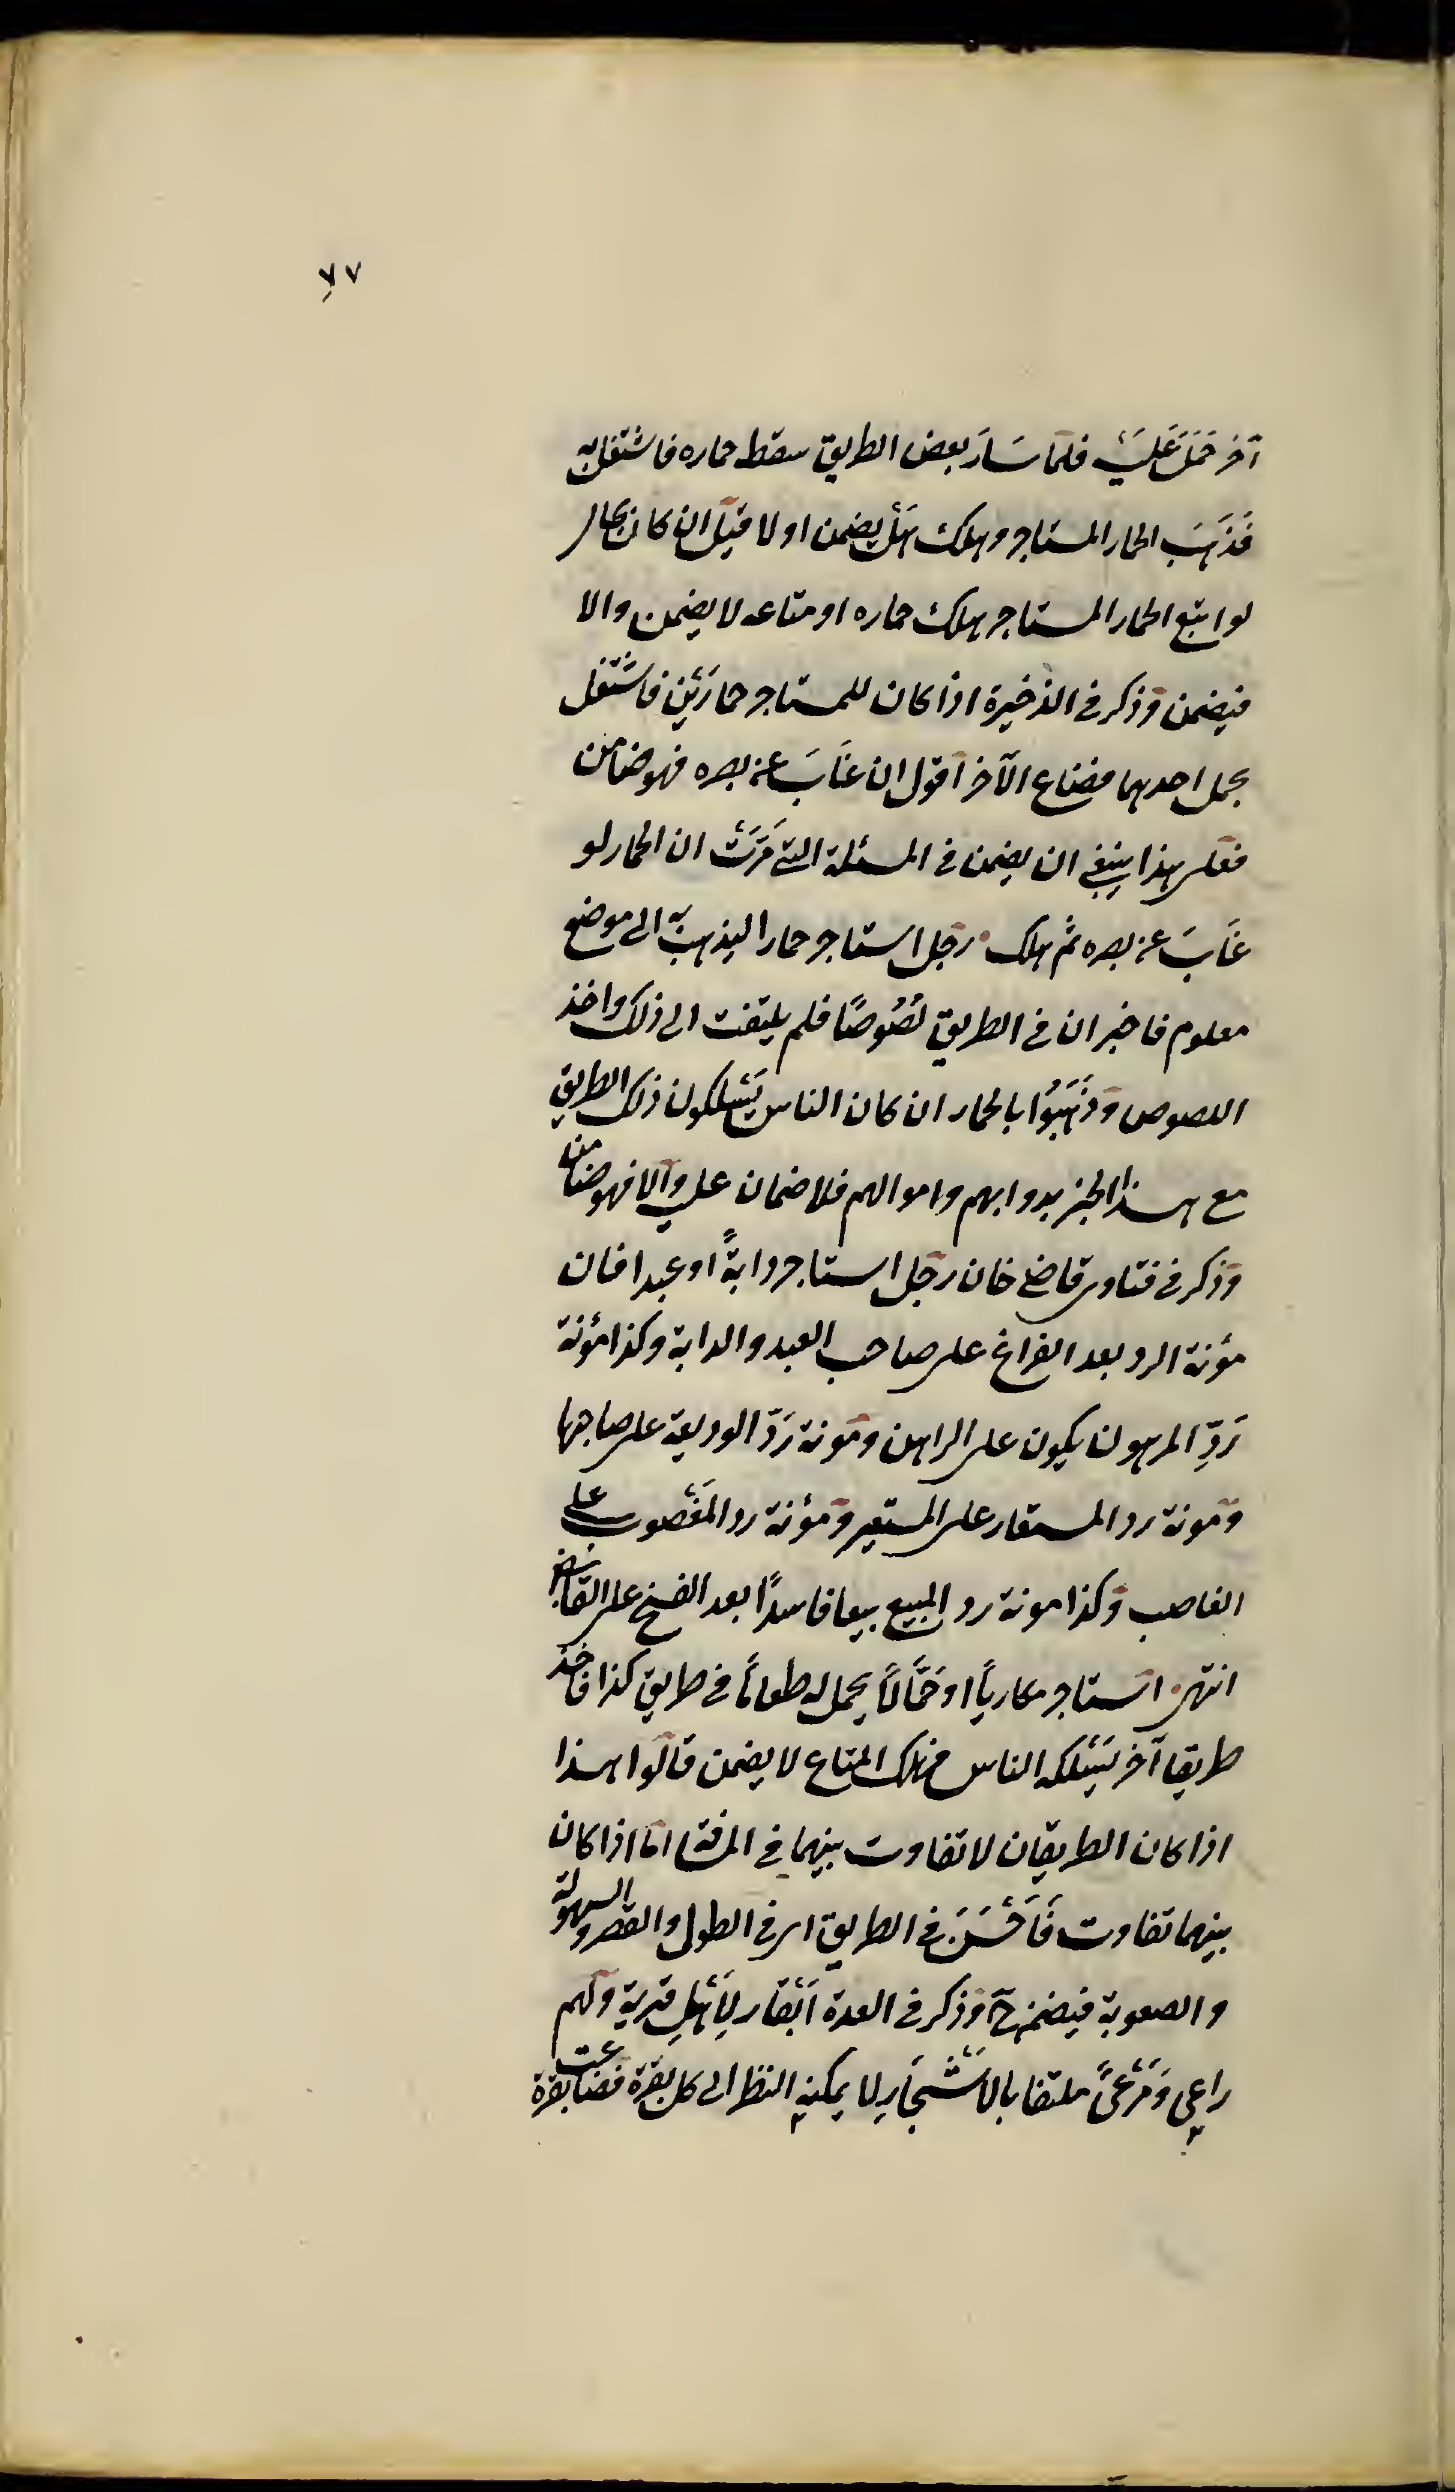 ٧٧
آخر حَمَلَ عَلَيْهِ فلمّا سَارَ بعض الطريق سقط حماره فاشتغل به
فَذَهَبَ الحمار المستاجر وهلك هَلْ يضمن او لا قيل ان كان بحال
لو اتبع الحمار المستاجر هلك حماره او متاعه لا يضمن والا
فيضمن وذكر فى الذخيرة اذا كان للمستاجر حمارَيْن فاشْتغل
بحمل احدهما فضاع الآخر اقول ان غَابَ عن بصره فهو ضامن
فعلى هذا ينبغى ان يضمن فى المسئلة التى مَرَّتْ ان الحمار لو
غَابَ عن بصره ثم هلك رجل استاجر حمارا ليذهب به الى موضع
معلوم فاخبر ان فى الطريق لُصُوصًا فلم يلتفت الى ذلك واخذ
اللصوص وذَهَبُوا بالحمار ان كان الناس يَسْلكون ذلك الطريق
مع هذا الخبر بدوابهم واموالهم فلا ضمان عليه والا فهو ضامن
وذكر فى فتاوى قاضى خان رجل استاجر دابةً او عبدا فان
مؤنة الرد بعد الفراغ على صاحب العبد والدابة وكذا مؤنة
رَدِّ المرهون يكون على الراهن ومونة رَدّ الوديعة على صاحبها
ومونة رد المستعار على المستعير ومؤنة رد المَغْصوب على
الغاصب وكذا مونة رد المبيع بيعا فاسدًا بعد الفسخ على القابض
انتهى استاجر مكاريًا او حَمَّالًا يحمل له طعامًا فى طريق كذا فاخذ
طريقا آخر يَسْلكه الناس فهلك المتاع لا يضمن قالوا هذا
اذا كان الطريقان لا تفاوت بينهما فى المرفقا امّا اذا كان
بينهما تفاوت فَاحْشَنَ فى الطريق اى فى الطول والقصر والسهولة
والصعوبة فيضمن حَ وذكر فى العدة اَبْقار لِاَهْلِ قرية ولهم
راعى وَمَرْعىً ملتفا بالاَشْجَارِ لا يمكنه النظر الى كل بقرة فضاعت بقرة